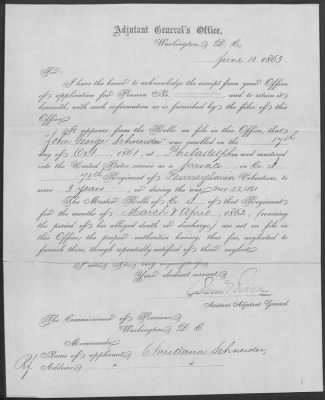 Adjutant General's Office,
Washington, D. C.,
June 10 1863.
Sir:
I have the honor to acknowledge the receipt from your Office
of application for Pension No. and to return it
herewith, with such information as is furnished by the files of this
Office.
It appears from the Rolls on file in this Office, that
John George Schneider was enrolled on the 17th
day of Oct 1861, at Philadelphia and mustered
into the United States service as a Private in Co. I
75th Regiment of Pennsylvania Volunteers, to
serve 3 years or during the war, Nov 28 /61
The Muster Rolls of Co. I of that Regiment
for the months of March & April, 1862, (covering
the period of his alleged death or discharge,) are not on file in
this Office; the proper authorities having, thus far, neglected to
furnish them, though repeatedly notified of their neglect.
I am, Sir, very respectfully,
Your obedient servant,
Assistant Adjutant General.
The Commissioner of Pensions,
Washington, D. C.
Memoranda:
Name of applicant, Christiana Schneider,
Address,